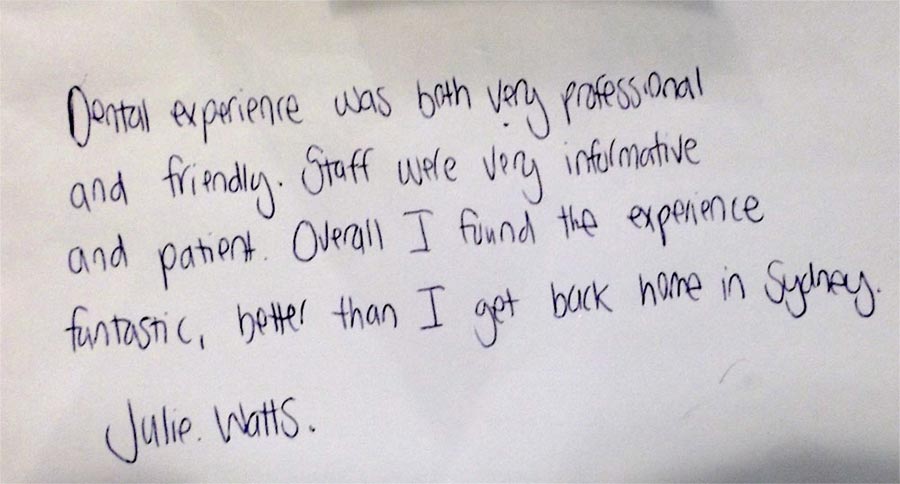 Dental experience was both very professional
and friendly. Staff were very informative
and patient. Overall I found the experience
fantastic, better than I get back home in Sydney.
Julie. Watts.